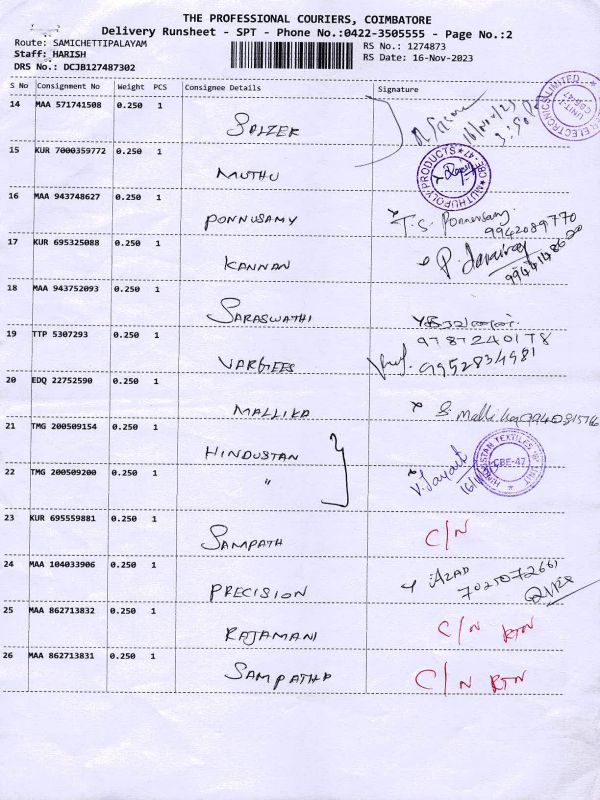 THE PROFESSIONAL COURIERS, COIMBATORE
Delivery Runsheet - SPT - Phone No.:0422-3505555 - Page No.:2
Route: SAMICHETTIPALAYAM
Staff: HARISH
DRS No.: DCJB127487302
RS No.: 1274873
RS Date: 16-Nov-2023
S No Consignment No Weight PCS Consignee Details Signature
14 MAA 571741508 0.250 1 SALZER
15 KUR 7000359772 0.250 1 MUTHU
MUTHU POLY PRODUCTS * CBE-47 *
16 MAA 943748627 0.250 1 PONNUSAMY T.S. Ponnusamy
9942089770
17 KUR 695325088 0.250 1 KANNAN
18 MAA 943752093 0.250 1 SARASWATHI
9787240178
19 TTP 5307293 0.250 1 VARGEES 9952834981
20 EDQ 22752590 0.250 1 MALLIKA S. Mallika
21 TMG 200509154 0.250 1 HINDUSTAN
HINDUSTAN TEXTILES "B" UNIT * CBE-47
22 TMG 200509200 0.250 1 " V. Jayanthi
23 KUR 695559881 0.250 1 SAMPATH C/N
24 MAA 104033906 0.250 1 PRECISION AZAD
25 MAA 862713832 0.250 1 RAJAMANI C/N RTN
26 MAA 862713831 0.250 1 SAMPATH C/N RTN